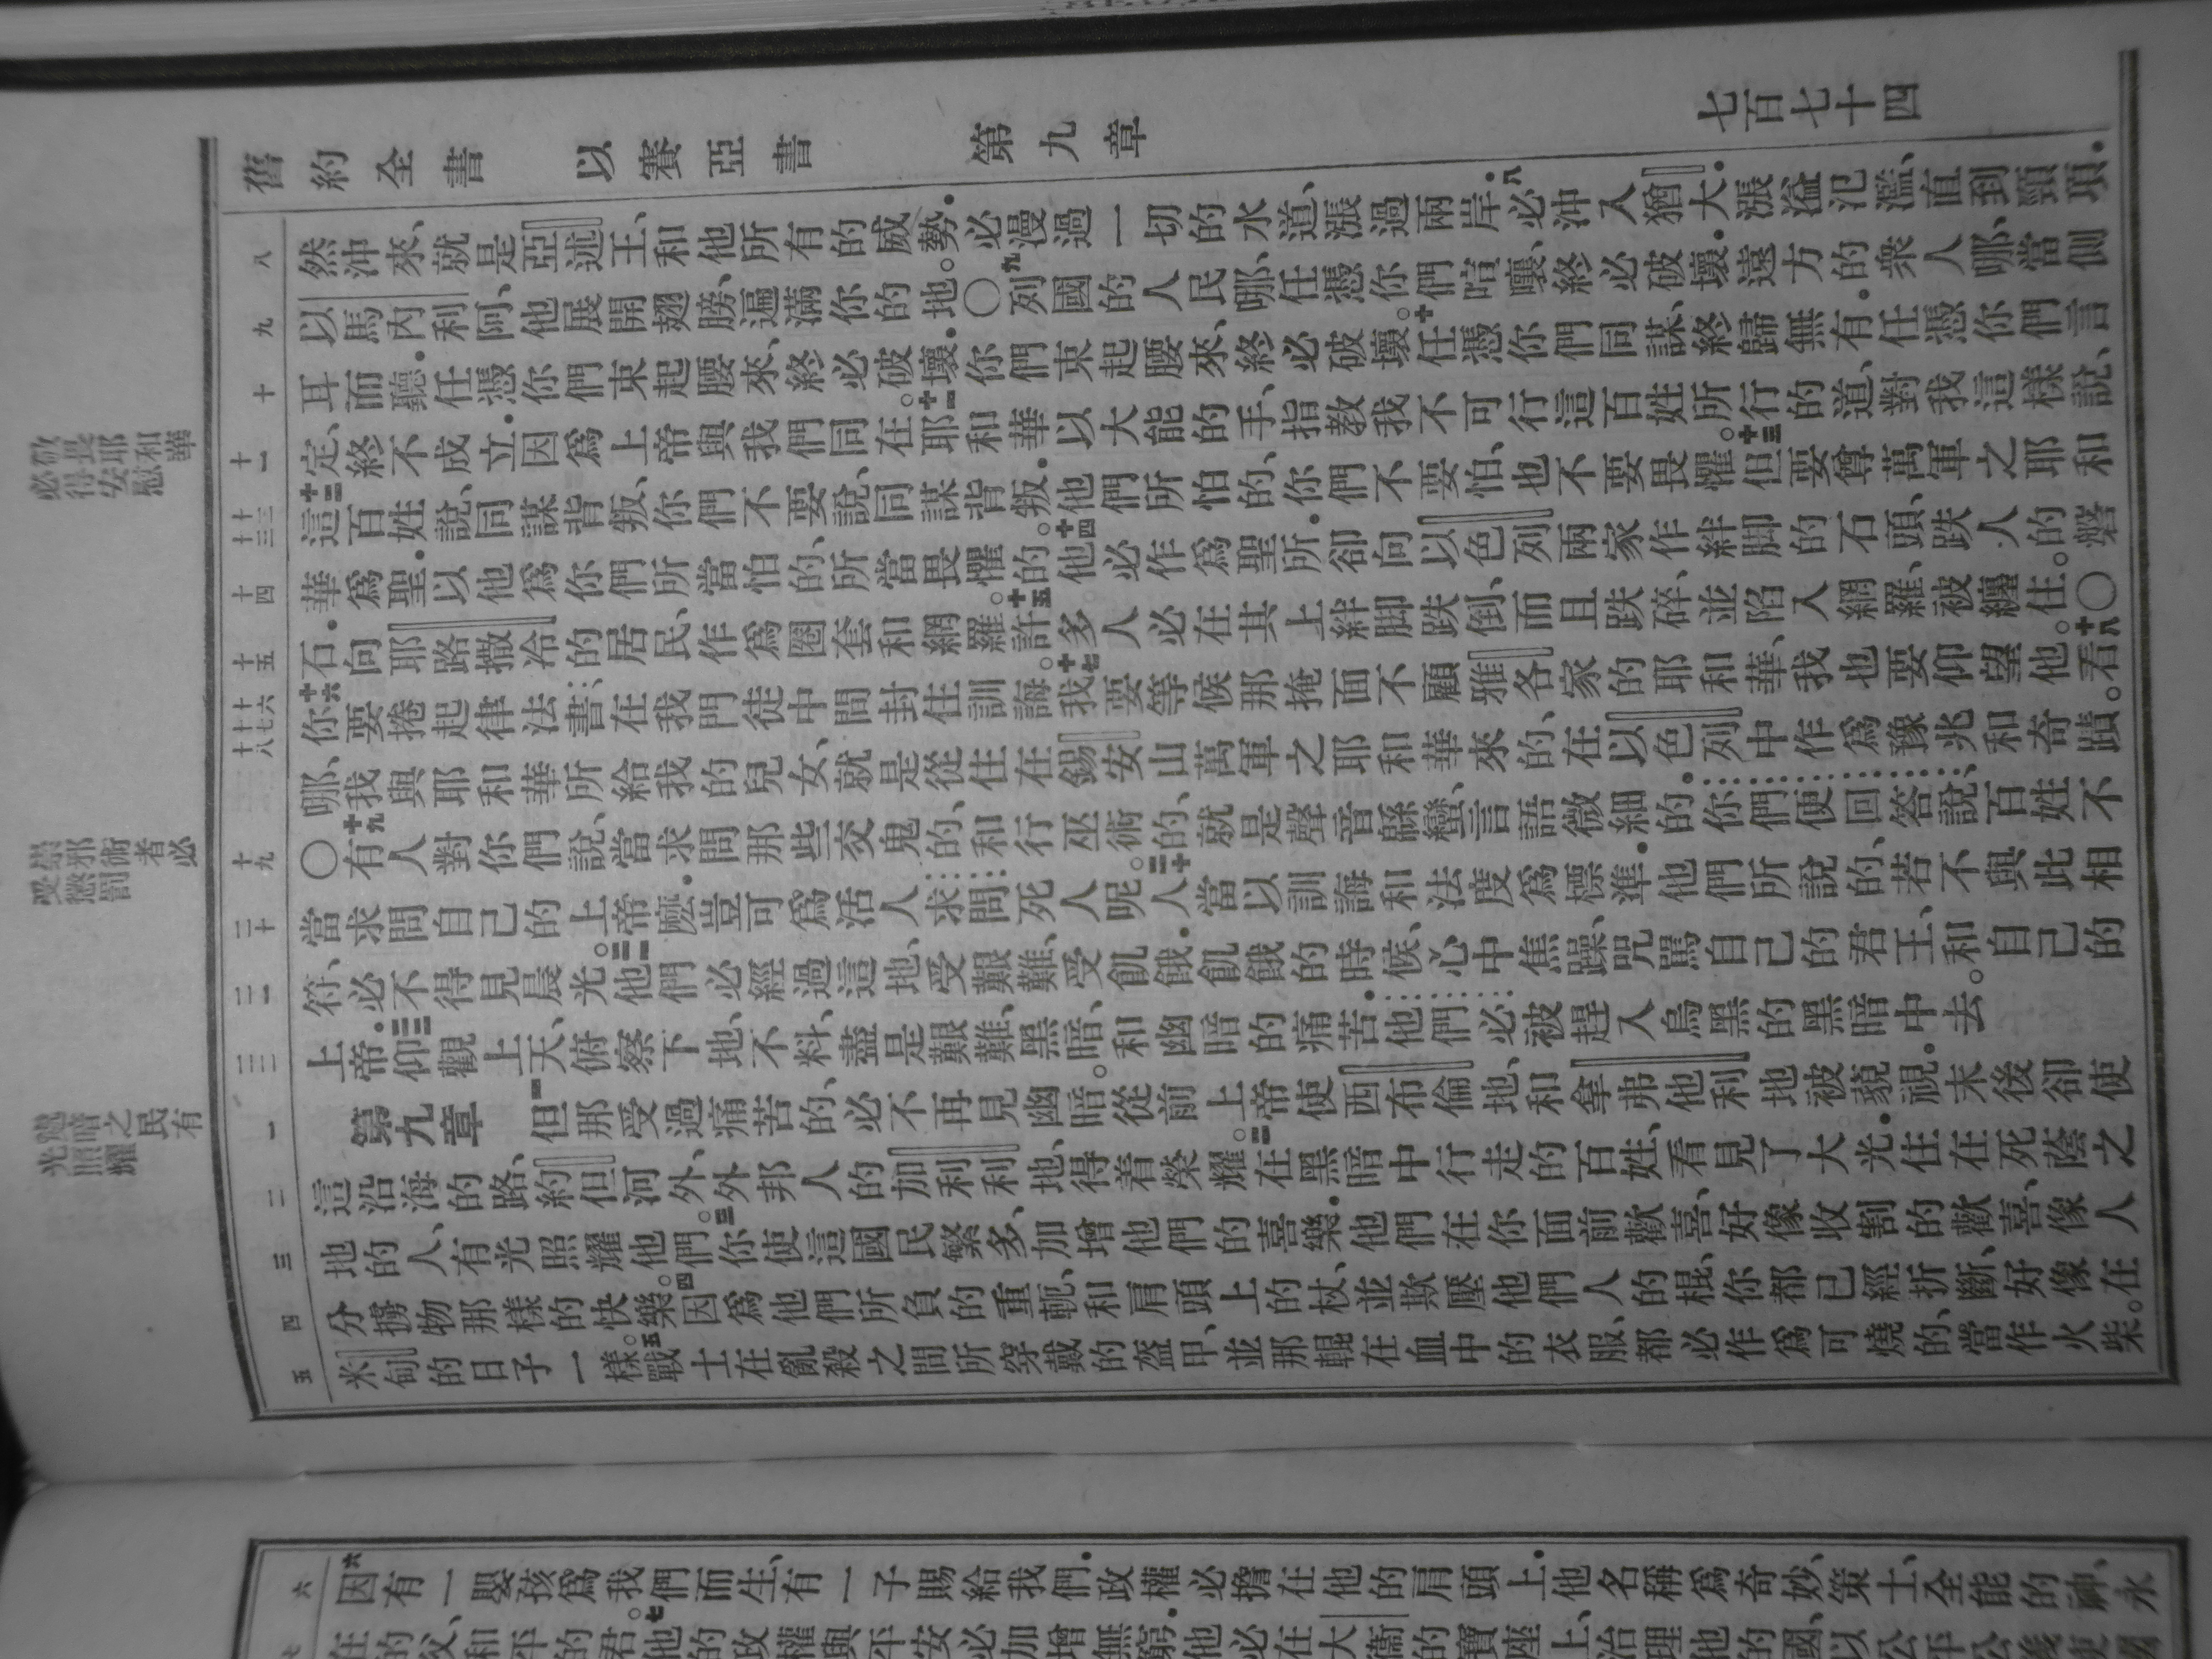 舊約全書　以賽亞書　第九章　七百七十四
八　然沖來、就是亞述王、和他所有的威勢．必漫過一切的水道、漲過兩岸．八必沖入猶大．漲溢氾濫、直到頸項．
九　以馬內利阿、他展開翅膀、遍滿你的地。○九列國的人民哪、任憑你們喧嚷、終必破壞．遠方的衆人哪、當側
十　耳而聽．任憑你們束起腰來、終必破壞．你們束起腰來、終必破壞。十任憑你們同謀、終歸無有．任憑你們言
十一　定、終不成立．因爲上帝與我們同在。十一耶和華以大能的手、指教我不可行這百姓所行的道、對我這樣說、
十二十三　十二這百姓說、同謀背叛、你們不要說、同謀背叛．他們所怕的、你們不要怕、也不要畏懼。十三但要尊萬軍之耶和
十四　華爲聖．以他爲你們所當怕的、所當畏懼的。十四他必作爲聖所．卻向以色列兩家作絆脚的石頭、跌人的磐
十五　石．向耶路撒冷的居民、作爲圈套和網羅。十五許多人必在其上絆脚跌倒、而且跌碎、並陷入網羅、被纏住。○
十六十七十八　十六你要捲起律法書、在我門徒中間封住訓誨。十七我要等候那掩面不顧雅各家的耶和華、我也要仰望他。十八看
哪、我與耶和華所給我的兒女、就是從住在錫安山萬軍之耶和華來的、在以色列中作爲豫兆和奇蹟。
十九　○十九有人對你們說、當求問那些交鬼的、和行巫術的、就是聲音緜蠻、言語微細的．你們便回答說、百姓不
二十　當求問自己的上帝麼．豈可爲活人求問死人呢。二十人當以訓誨和法度爲標準．他們所說的、若不與此相
二一　符、必不得見晨光。二一他們必經過這地、受艱難、受飢餓．飢餓的時候、心中焦躁、咒罵自己的君王、和自己的
二二　上帝．二二仰觀上天、俯察下地、不料、盡是艱難、黑暗、和幽暗的痛苦．他們必被趕入烏黑的黑暗中去。
一　第九章　一但那受過痛苦的、必不再見幽暗。從前上帝使西布倫地、和拿弗他利地被藐視．末後卻使
二　這沿海的路、約但河外、外邦人的加利利地、得着榮耀。二在黑暗中行走的百姓、看見了大光．住在死蔭之
三　地的人、有光照耀他們。三你使這國民繁多、加增他們的喜樂．他們在你面前歡喜、好像收割的歡喜、像人
四　分擄物那樣的快樂。四因爲他們所負的重軛、和肩頭上的杖、並欺壓他們人的棍、你都已經折斷、好像在
五　米甸的日子一樣。五戰士在亂殺之間所穿戴的盔甲、並那輥在血中的衣服、都必作爲可燒的、當作火柴。
敬畏耶和華
必得安慰
崇邪術者必
受懲罰
處暗之民有
光照耀
六　六因有一嬰孩爲我們而生、有一子賜給我們．政權必擔在他的肩頭上．他名稱爲奇妙、策士、全能的神、永
七　在的父、和平的君。七他的政權與平安必加增無窮．他必在大衞的寶座上、治理他的國、以公平公義